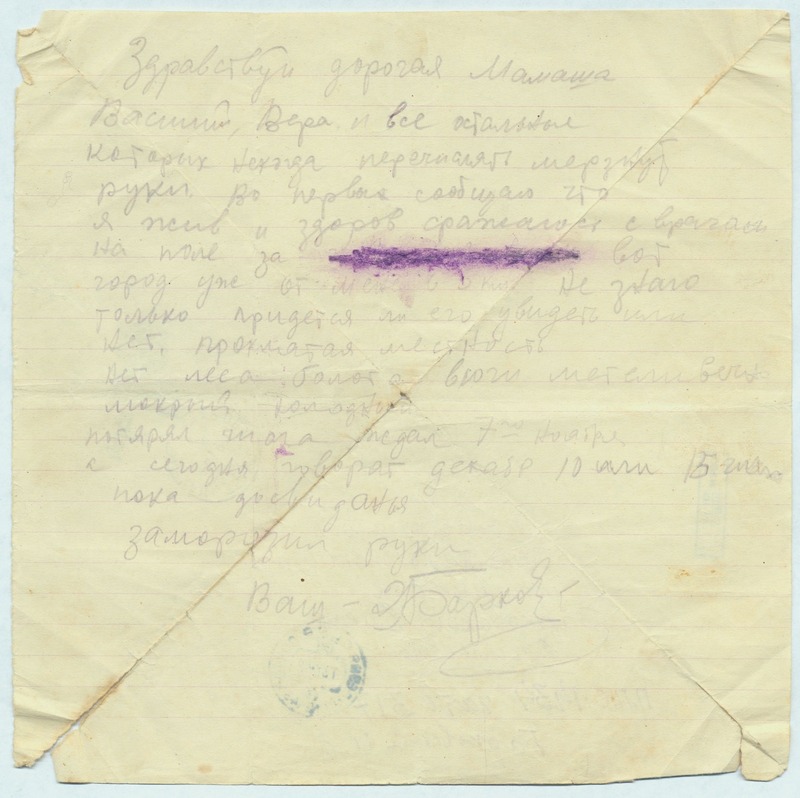 Здравствуй дорогая Мамаша
Василий, Вера и все остальные
которих некогда перечислять мерзнут
руки. Во первых сообщаю что
я жив и здоров сражаюсь с врагами
на поле за вот
город уже от меня в Не знаю
только придется ли его увидеть или
нет, проклятая местность
нет леса болота вюги метели вечно
мокрый холодний
потярял числа ждал 7го ноября
а сегодня говорат декабр 10 или 15 число
пока досвиданья
заморизил руки
Ваш - Барков